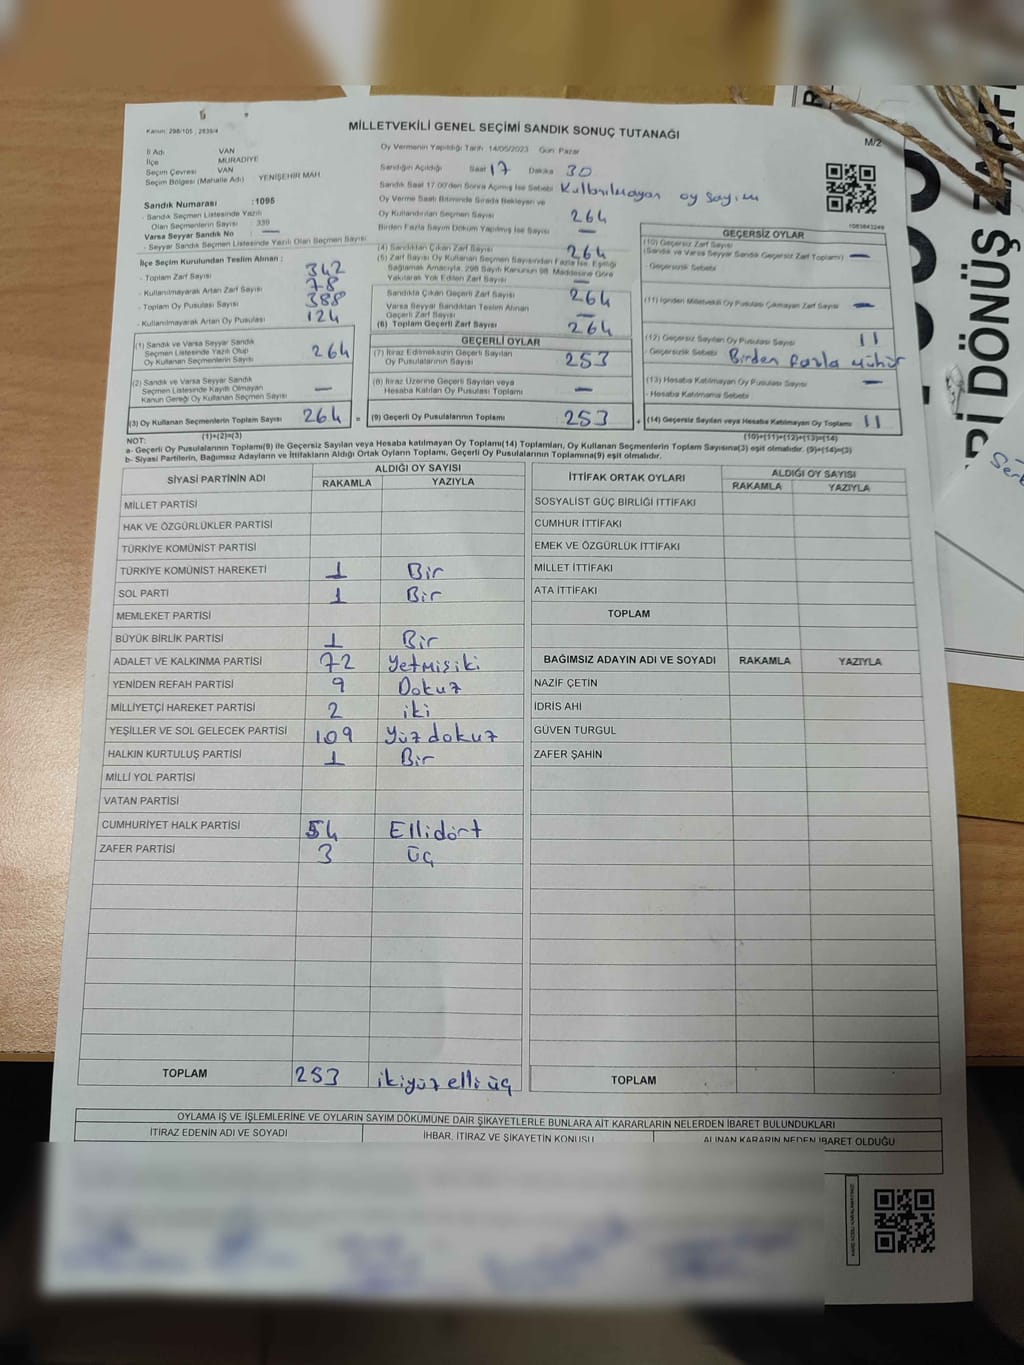 MİLLETVEKİLİ GENEL SEÇİMİ SANDIK SONUÇ TUTANAĞI
Kanun: 298/105 , 2839/4
M/2
İl Adı VAN
İlçe MURADİYE
Seçim Çevresi VAN
Seçim Bölgesi (Mahalle Adı) YENİŞEHİR MAH.
Sandık Numarası :1095
- Sandık Seçmen Listesinde Yazılı
Olan Seçmenlerin Sayısı : 339
Varsa Seyyar Sandık No —
- Seyyar Sandık Listesinde Yazılı Olan Seçmen Sayısı
İlçe Seçim Kurulundan Teslim Alınan :
- Toplam Zarf Sayısı 342
- Kullanılmayarak Artan Zarf Sayısı 78
- Toplam Oy Pusulası Sayısı 388
- Kullanılmayarak Artan Oy Pusulası 124
(1) Sandık ve Varsa Seyyar Sandık
Seçmen Listesinde Yazılı Olup
Oy Kullanan Seçmenlerin Sayısı 264
(2) Sandık ve Varsa Seyyar Sandık
Seçmen Listesinde Kayıtlı Olmayan
Kanun Gereği Oy Kullanan Seçmen Sayısı —
(3) Oy Kullanan Seçmenlerin Toplam Sayısı 264 =
(1)+(2)=(3)
Oy Vermenin Yapıldığı Tarih :14/05/2023 Gün: Pazar
Sandığın Açıldığı Saat 17 Dakika 30
Sandık Saat 17.00'den Sonra Açılmış İse Sebebi Kullanılmayan oy sayım
Oy Verme Saati Bitiminde Sırada Bekleyen ve
Oy Kullandırılan Seçmen Sayısı 264
Birden Fazla Sayım Döküm Yapılmış İse Sayısı —
(4) Sandıktan Çıkan Zarf Sayısı 264
(5) Zarf Sayısı Oy Kullanan Seçmen Sayısından Fazla İse, Eşitliği
Sağlamak Amacıyla, 298 Sayılı Kanunun 98. Maddesine Göre
Yakılarak Yok Edilen Zarf Sayısı —
Sandıkta Çıkan Geçerli Zarf Sayısı 264
Varsa Seyyar Sandıktan Teslim Alınan
Geçerli Zarf Sayısı —
(6) Toplam Geçerli Zarf Sayısı 264
GEÇERLİ OYLAR
(7) İtiraz Edilmeksizin Geçerli Sayılan
Oy Pusulalarının Sayısı 253
(8) İtiraz Üzerine Geçerli Sayılan veya
Hesaba Katılan Oy Pusulaları Toplamı —
(9) Geçerli Oy Pusulalarının Toplamı 253 +
1083643249
GEÇERSİZ OYLAR
(10) Geçersiz Zarf Sayısı
(Sandık ve Varsa Seyyar Sandık Geçersiz Zarf Toplamı) —
- Geçersizlik Sebebi
(11) İçinden Milletvekili Oy Pusulası Çıkmayan Zarf Sayısı —
(12) Geçersiz Sayılan Oy Pusulası Sayısı 11
- Geçersizlik Sebebi Birden fazla mühür
(13) Hesaba Katılmayan Oy Pusulası Sayısı —
- Hesaba Katılmama Sebebi
(14) Geçersiz Sayılan veya Hesaba Katılmayan Oy Toplamı 11
(10)+(11)+(12)+(13)=(14)
NOT:
a- Geçerli Oy Pusulalarının Toplamı(9) ile Geçersiz Sayılan veya Hesaba katılmayan Oy Toplamı(14) Toplamları, Oy Kullanan Seçmenlerin Toplam Sayısına(3) eşit olmalıdır. (9)+(14)=(3)
b- Siyasi Partilerin, Bağımsız Adayların ve İttifakların Aldığı Ortak Oyların Toplamı, Geçerli Oy Pusulalarının Toplamına(9) eşit olmalıdır.
SİYASİ PARTİNİN ADI ALDIĞI OY SAYISI
RAKAMLA YAZIYLA
MİLLET PARTİSİ
HAK VE ÖZGÜRLÜKLER PARTİSİ
TÜRKİYE KOMÜNİST PARTİSİ
TÜRKİYE KOMÜNİST HAREKETİ 1 Bir
SOL PARTİ 1 Bir
MEMLEKET PARTİSİ
BÜYÜK BİRLİK PARTİSİ 1 Bir
ADALET VE KALKINMA PARTİSİ 72 Yetmişiki
YENİDEN REFAH PARTİSİ 9 Dokuz
MİLLİYETÇİ HAREKET PARTİSİ 2 iki
YEŞİLLER VE SOL GELECEK PARTİSİ 109 Yüzdokuz
HALKIN KURTULUŞ PARTİSİ 1 Bir
MİLLİ YOL PARTİSİ
VATAN PARTİSİ
CUMHURİYET HALK PARTİSİ 54 Ellidört
ZAFER PARTİSİ 3 üç
TOPLAM 253 ikiyüz elli üç
İTTİFAK ORTAK OYLARI ALDIĞI OY SAYISI
RAKAMLA YAZIYLA
SOSYALİST GÜÇ BİRLİĞİ İTTİFAKI
CUMHUR İTTİFAKI
EMEK VE ÖZGÜRLÜK İTTİFAKI
MİLLET İTTİFAKI
ATA İTTİFAKI
TOPLAM
BAĞIMSIZ ADAYIN ADI VE SOYADI RAKAMLA YAZIYLA
NAZİF ÇETİN
İDRİS AHİ
GÜVEN TURGUL
ZAFER ŞAHİN
TOPLAM
OYLAMA İŞ VE İŞLEMLERİNE VE OYLARIN SAYIM DÖKÜMÜNE DAİR ŞİKAYETLERLE BUNLARA AİT KARARLARIN NELERDEN İBARET BULUNDUKLARI
İTİRAZ EDENİN ADI VE SOYADI İHBAR, İTİRAZ VE ŞİKAYETİN KONUSU ALINAN KARARIN NEDEN İBARET OLDUĞU
DÖNÜŞ